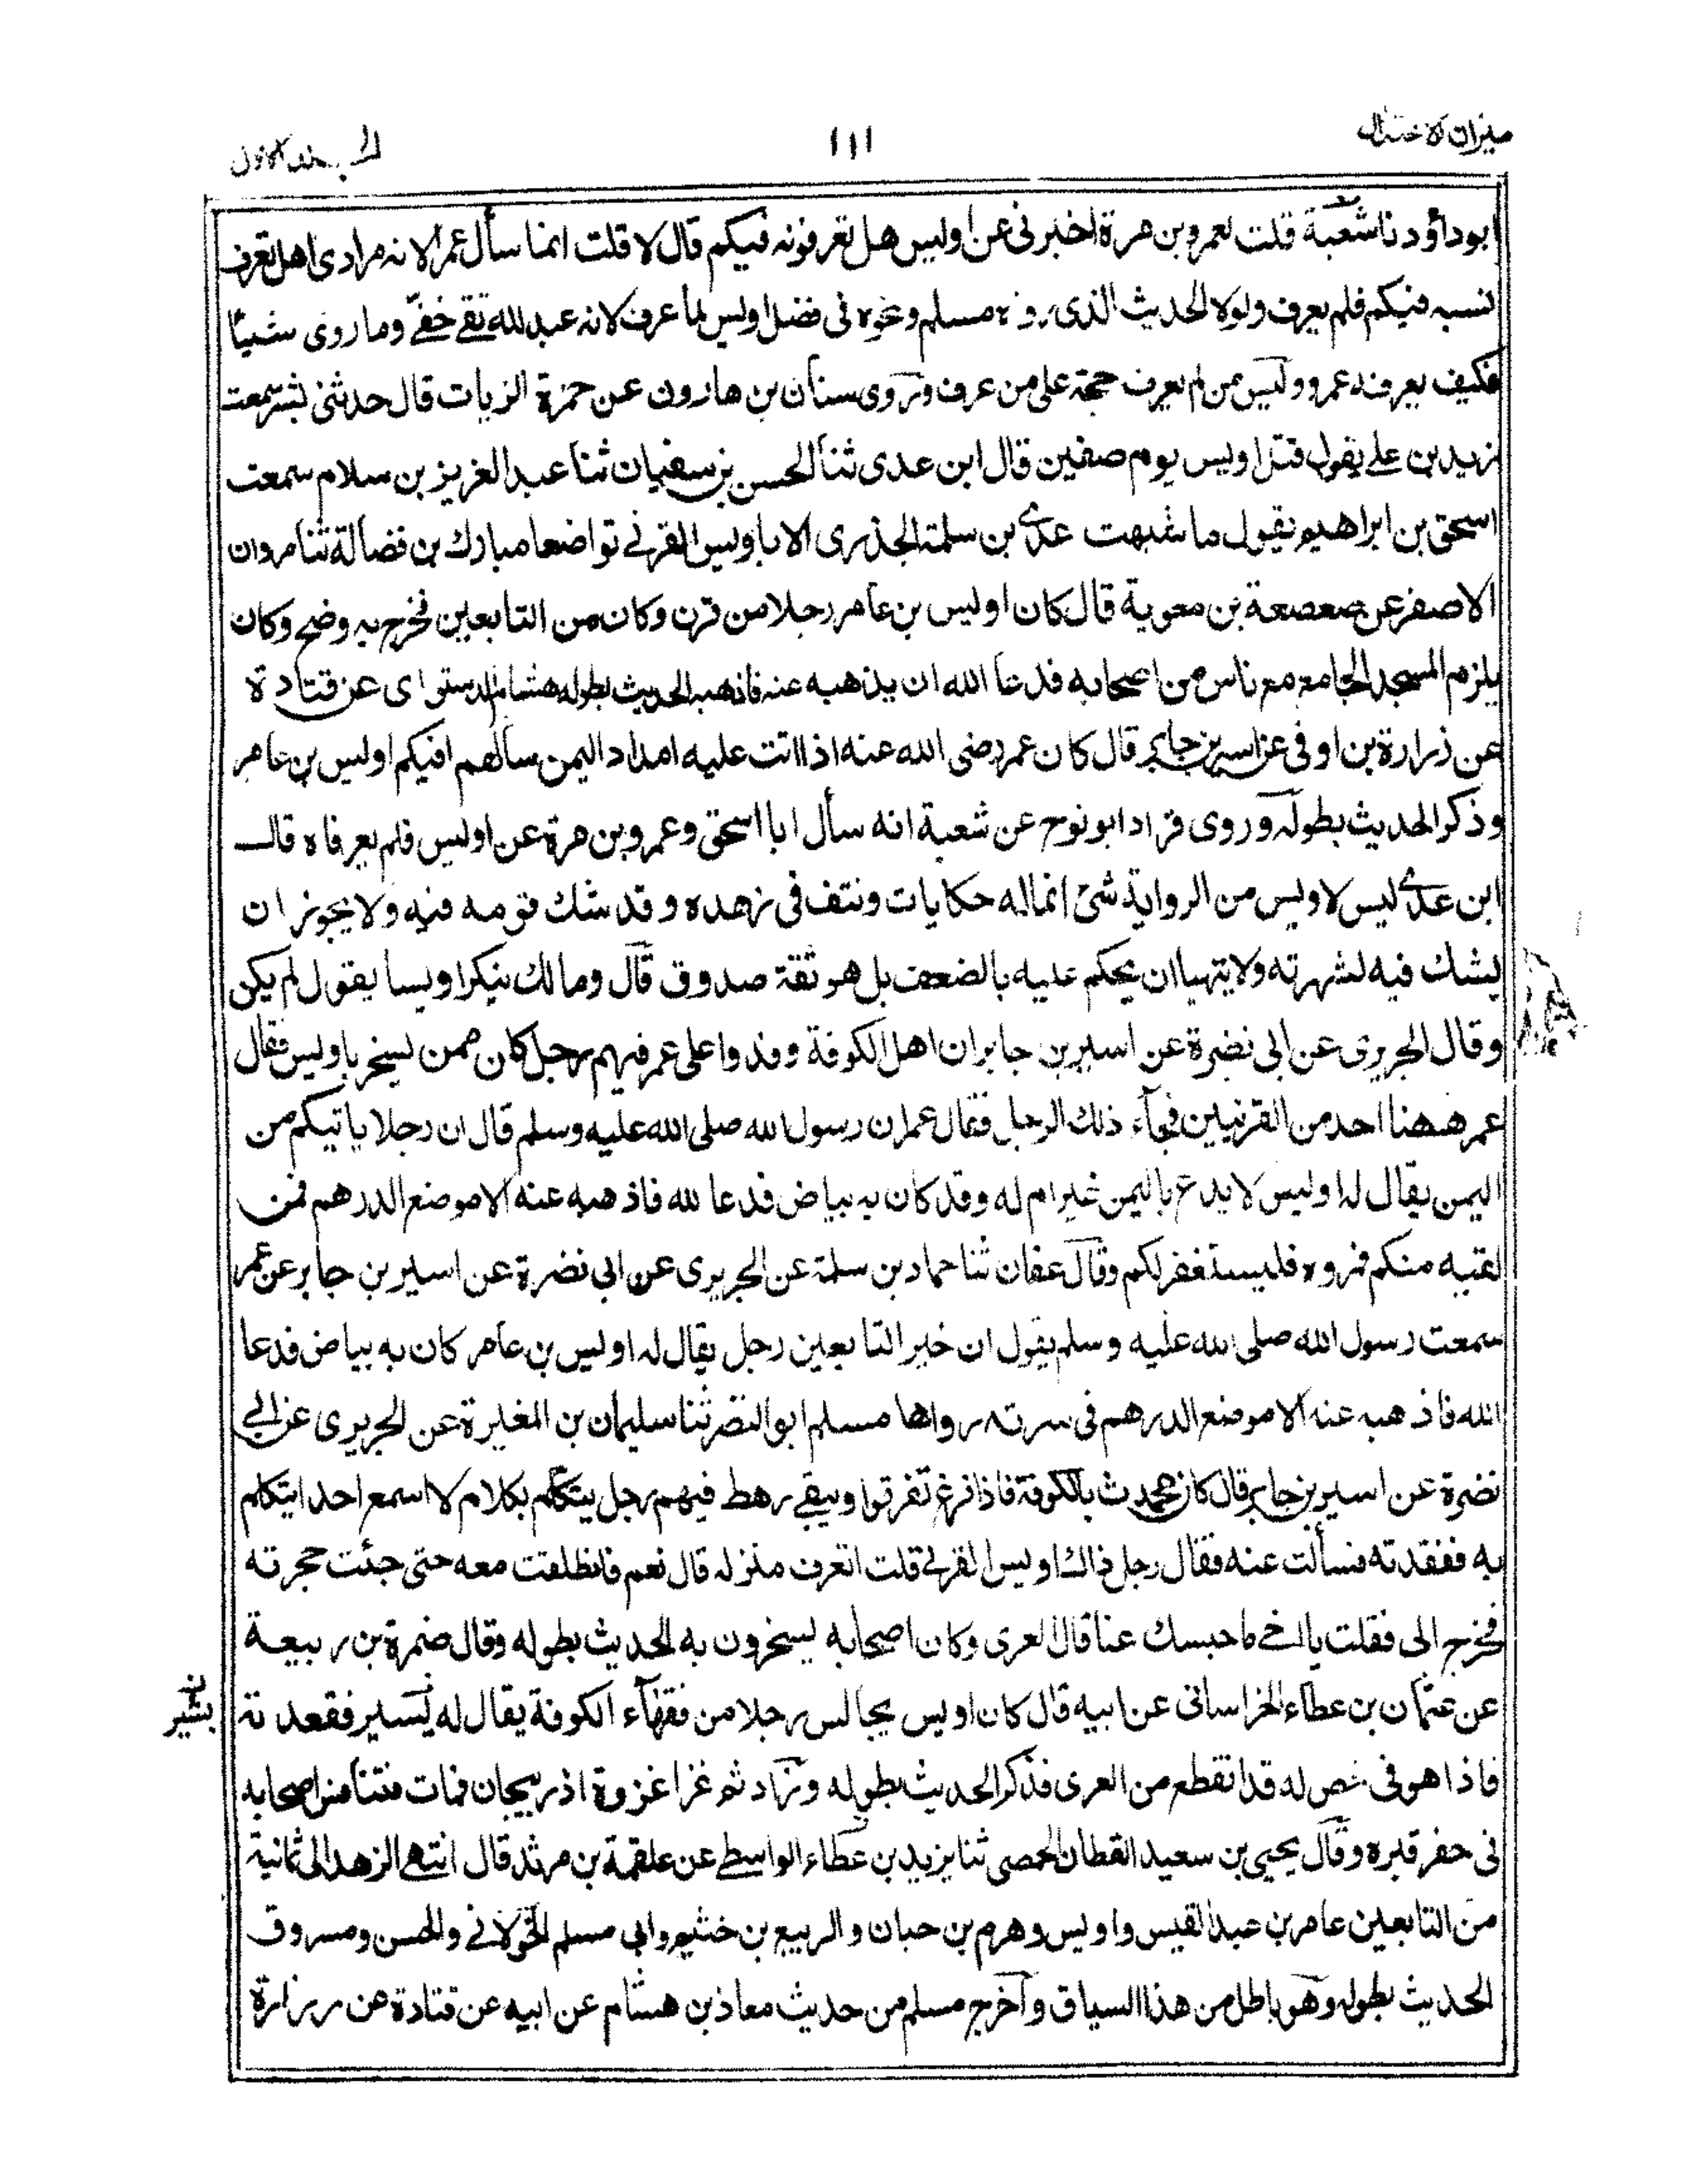 ميزان الاعتدال ١١١ الجلد الاول
ابوداؤد نا شعبة قلت لعمرو بن مرة اخبرنى عن اويس هل تعرفونه فيكم قال لا قلت انما سأل عمر لانه مرادى اهل تعرف
نسبه فيكم فلم يعرف ولولا الحديث الذى رواه مسلم ونحوه فى فضل اويس لما عرف لانه عبد لله تقى خفى وما روى شيئا
فكيف يعرفه عمرو وليس من لم يعرف حجة على من عرف وروى سنان بن هارون عن حمزة الزيات قال حدثنى بشر سمعت
زيد بن على يقول قتل اويس يوم صفين قال ابن عدى ثنا الحسن بن سفيان ثنا عبد العزيز بن سلام سمعت
اسحق بن ابراهيم يقول ما شبهت عدى بن سلمة الجزرى الا باويس القرنى تواضعا مبارك بن فضالة ثنا مروان
الاصفر عن صعصعة بن معوية قال كان اويس بن عامر رجلا من قرن وكان من التابعين فخرج به وضح وكان
يلزم المسجد الجامع مع ناس من اصحابه فدعا الله ان يذهبه عنه فاذهبه الحديث بطوله هشام الدستواى عن قتادة
عن زرارة بن اوفى عن اسير بن جابر قال كان عمر رضى الله عنه اذا اتت عليه امداد اليمن سألهم افيكم اويس بن عامر
وذكر الحديث بطوله وروى قراد ابو نوح عن شعبة انه سأل ابا اسحق وعمرو بن مرة عن اويس فلم يعرفاه قال
ابن عدى ليس لاويس من الرواية شئ انما له حكايات ونتف فى زهده وقد شك قومه فيه ولا يجوز ان
يشك فيه لشهرته ولا يتهيا ان يحكم عليه بالضعف بل هو ثقة صدوق قال ومالك ينكر اويسا يقول لم يكن
وقال الجريرى عن ابى نضرة عن اسير بن جابر ان اهل الكوفة وفدوا على عمر فيهم رجل كان ممن يسخر باويس فقال
عمر ههنا احد من القرنيين فجاء ذلك الرجل فقال عمر ان رسول الله صلى الله عليه وسلم قال ان رجلا ياتيكم من
اليمن يقال له اويس لا يدع باليمن غير ام له وقد كان به بياض فدعا لله فاذهبه عنه الا موضع الدرهم فمن
لقيه منكم فمروه فليستغفر لكم وقال عفان ثنا حماد بن سلمة عن الجريرى عن ابى نضرة عن اسير بن جابر عن عمر
سمعت رسول الله صلى الله عليه وسلم يقول ان خير التابعين رجل يقال له اويس بن عامر كان به بياض فدعا
الله فاذهبه عنه الا موضع الدرهم فى سرته رواها مسلم ابو النضر ثنا سليمان بن المغيرة عن الجريرى عن ابى
نضرة عن اسير بن جابر قال كان محدث بالكوفة فاذا فرغ تفرقوا ويبقى رهط فيهم رجل يتكلم بكلام لا اسمع احدا يتكلم
به ففقدته فسألت عنه فقال رجل ذاك اويس القرنى قلت اتعرف منزله قال نعم فانطلقت معه حتى جئت حجرته
فخرج الى فقلت يا اخى ما حبسك عنا قال العرى وكان اصحابه يسخرون به الحديث بطوله وقال ضمرة بن ربيعة
عن عثمان بن عطاء الخراسانى عن ابيه قال كان اويس يجالس رجلا من فقهاء الكوفة يقال له يسير ففقدته
بشير
فاذا هو فى خص له قد انقطع من العرى فذكر الحديث بطوله وزاد ثم غزا غزوة اذربيجان فمات فتنافس اصحابه
فى حفر قبره وقال يحيى بن سعيد القطان الحمصى ثنا يزيد بن عطاء الواسطى عن علقمة بن مرثد قال انتهى الزهد الى ثمانية
من التابعين عامر بن عبد القيس واويس وهرم بن حبان والربيع بن خثيم وابى مسلم الخولانى والحسن ومسروق
الحديث بطوله وهو باطل من هذا السياق وآخرج مسلم من حديث معاذ بن هشام عن ابيه عن قتادة عن زرارة